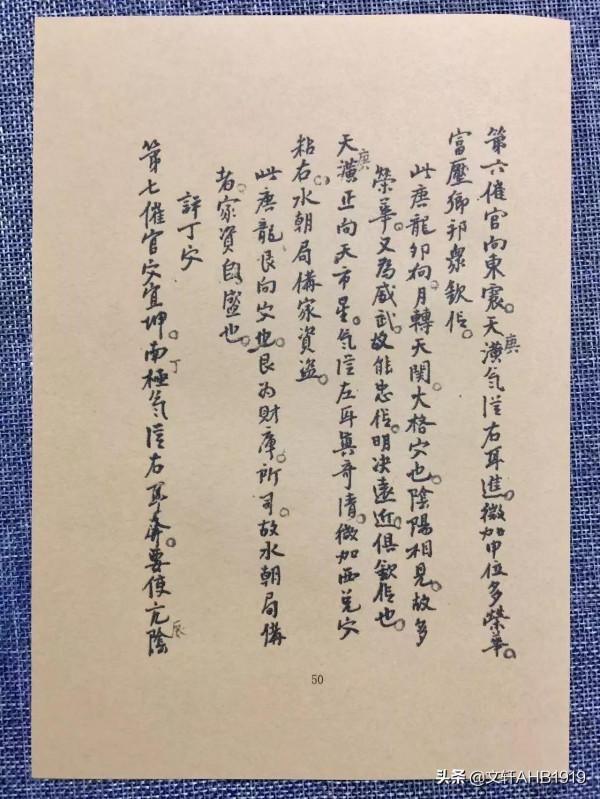 第六催官向東震。天潢庚氣從右耳進。微加申位多榮華。
富壓鄉邦衆欽伀。
此庚龍卯向。月轉天関。大格穴也。陰陽相見。故多
榮華。又為威武。故能忠伀。明决遠近。俱欽伀也。
天潢庚正向天市星。氣從左耳真奇清。微加西兑穴
粘右。水朝局備家資盈。
此庚龍艮向穴也。艮为財庫所司。故水朝局備
者。家資殷盛也。
評丁穴
第七催官穴宜坤。南極丁氣從右耳奔。要使亢陰辰
50
头条 @文轩AHB1919